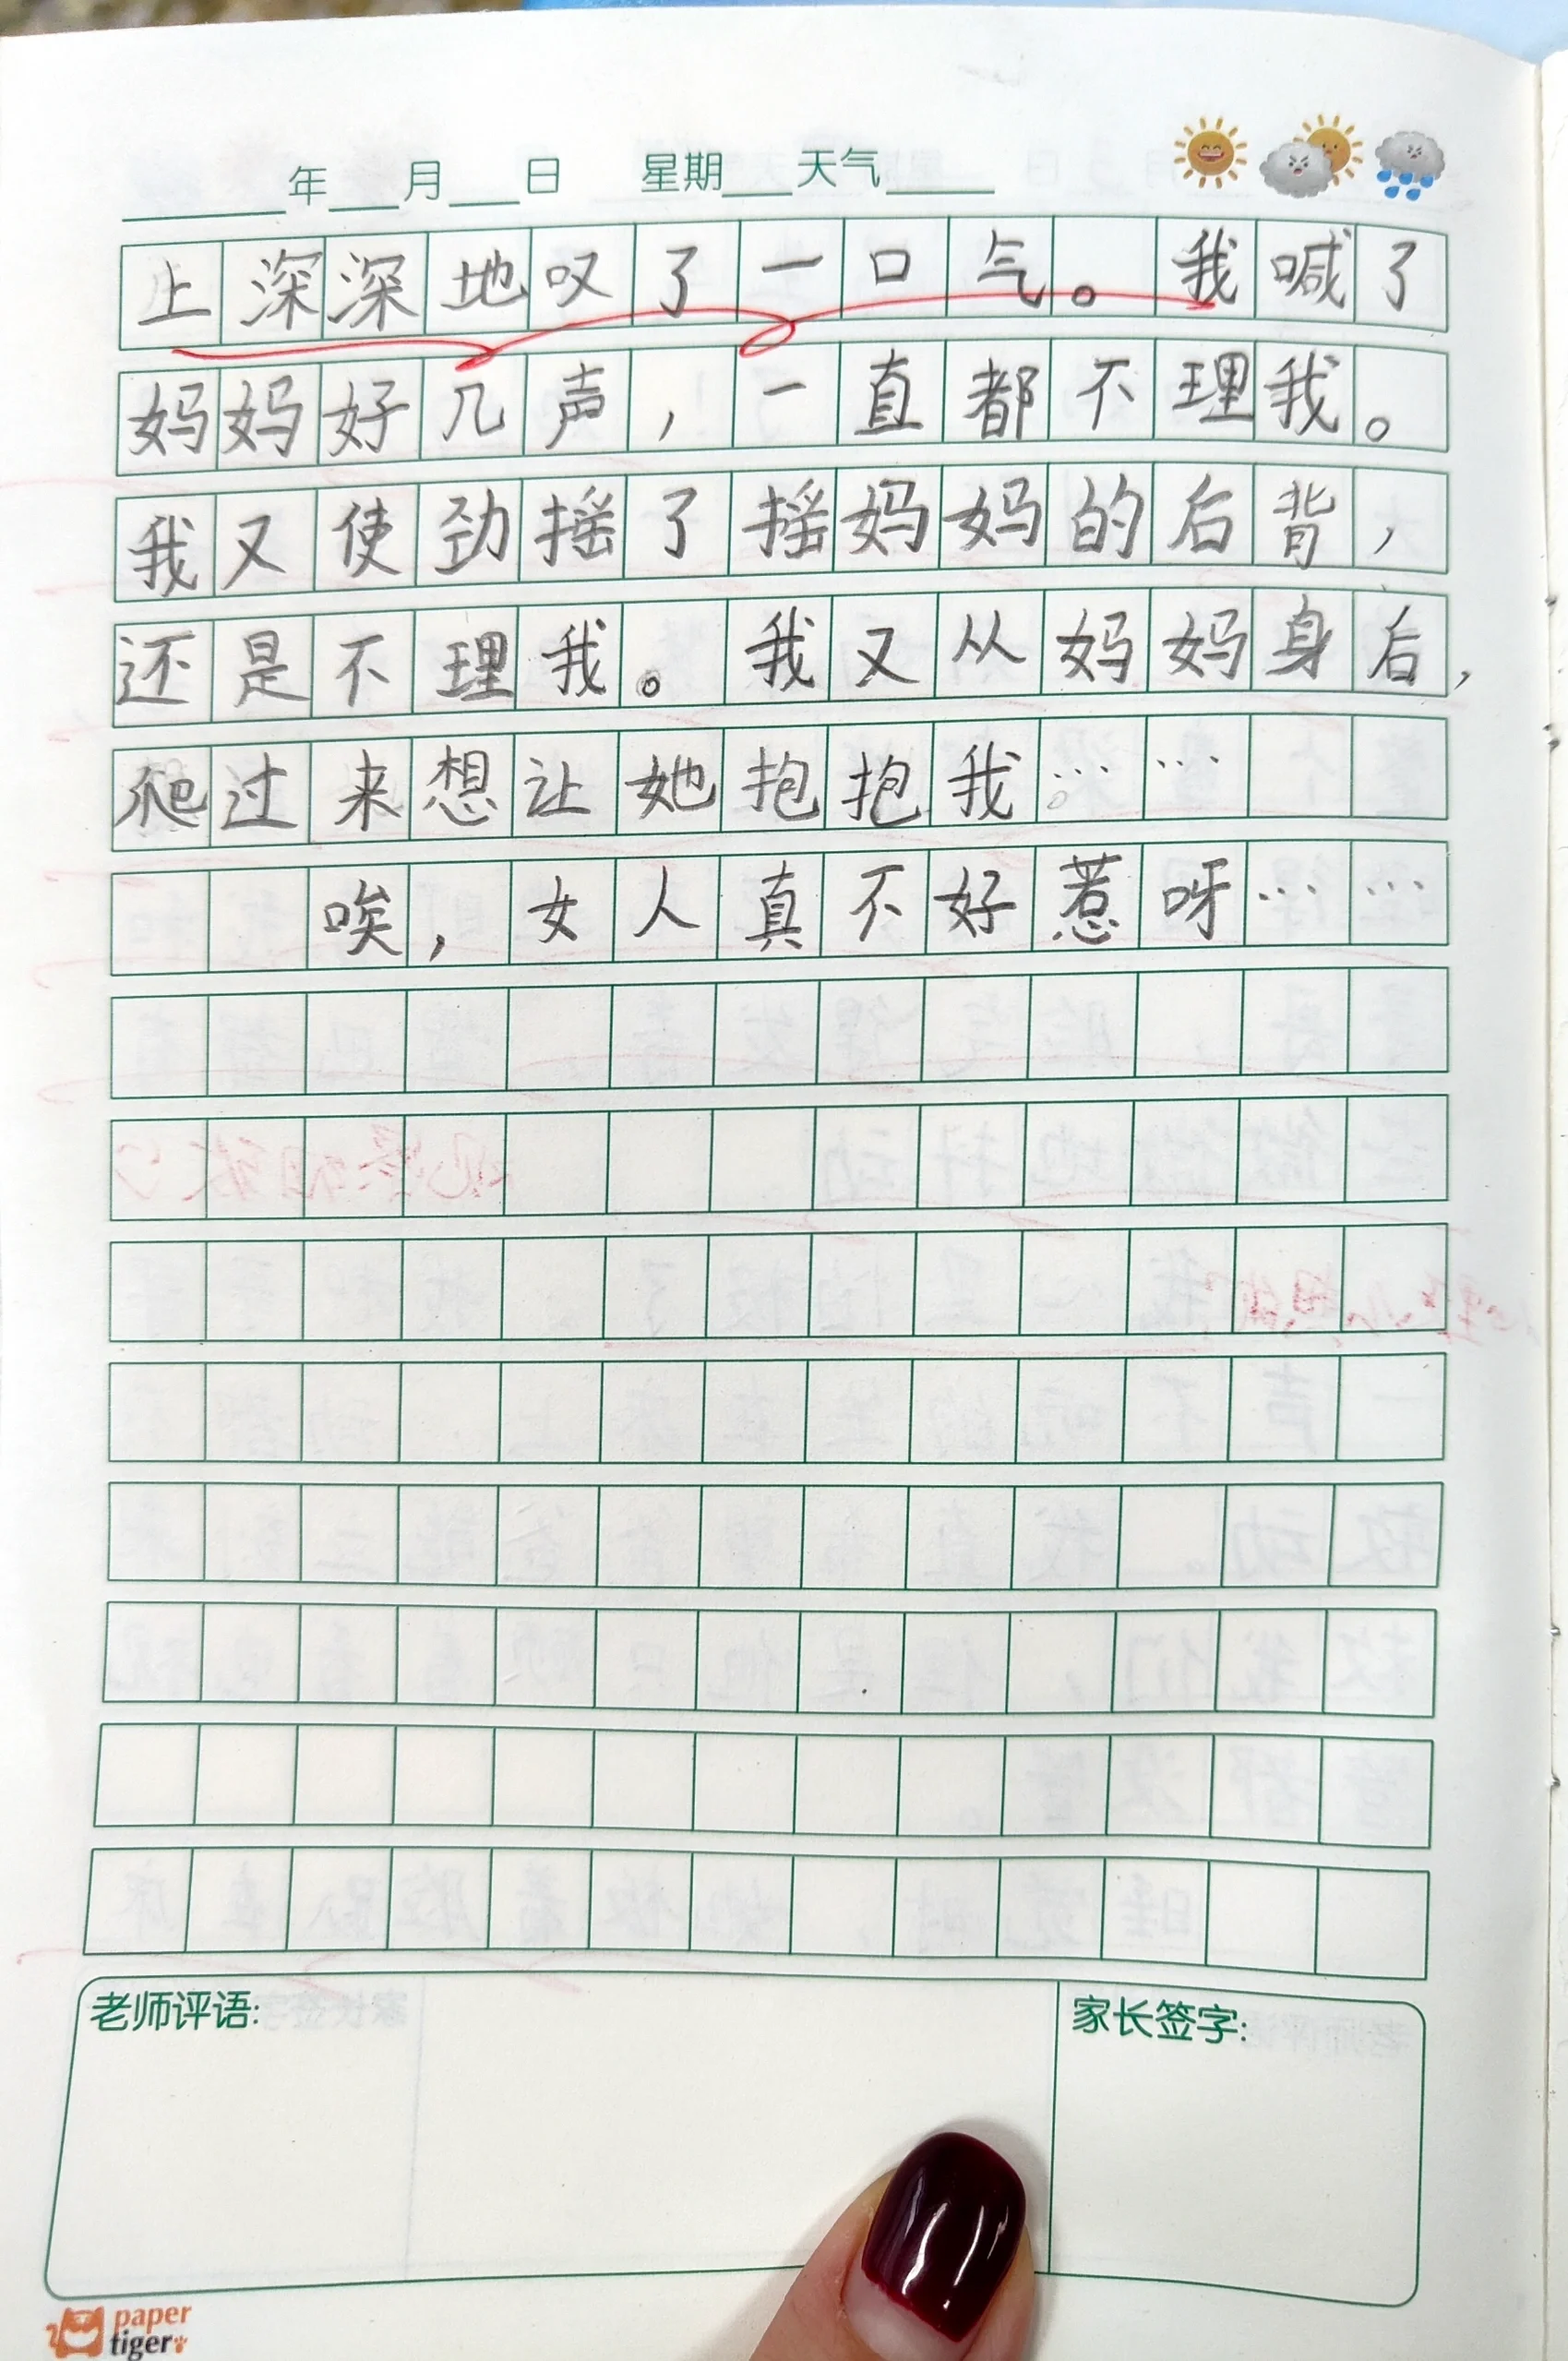 年 月 日 星期 天气
上深深地叹了一口气。我喊了
妈妈好几声，一直都不理我。
我又使劲摇了摇妈妈的后背，
还是不理我。我又从妈妈身后，
爬过来想让她抱抱我……
唉，女人真不好惹呀……
老师评语:
家长签字:
paper
tiger